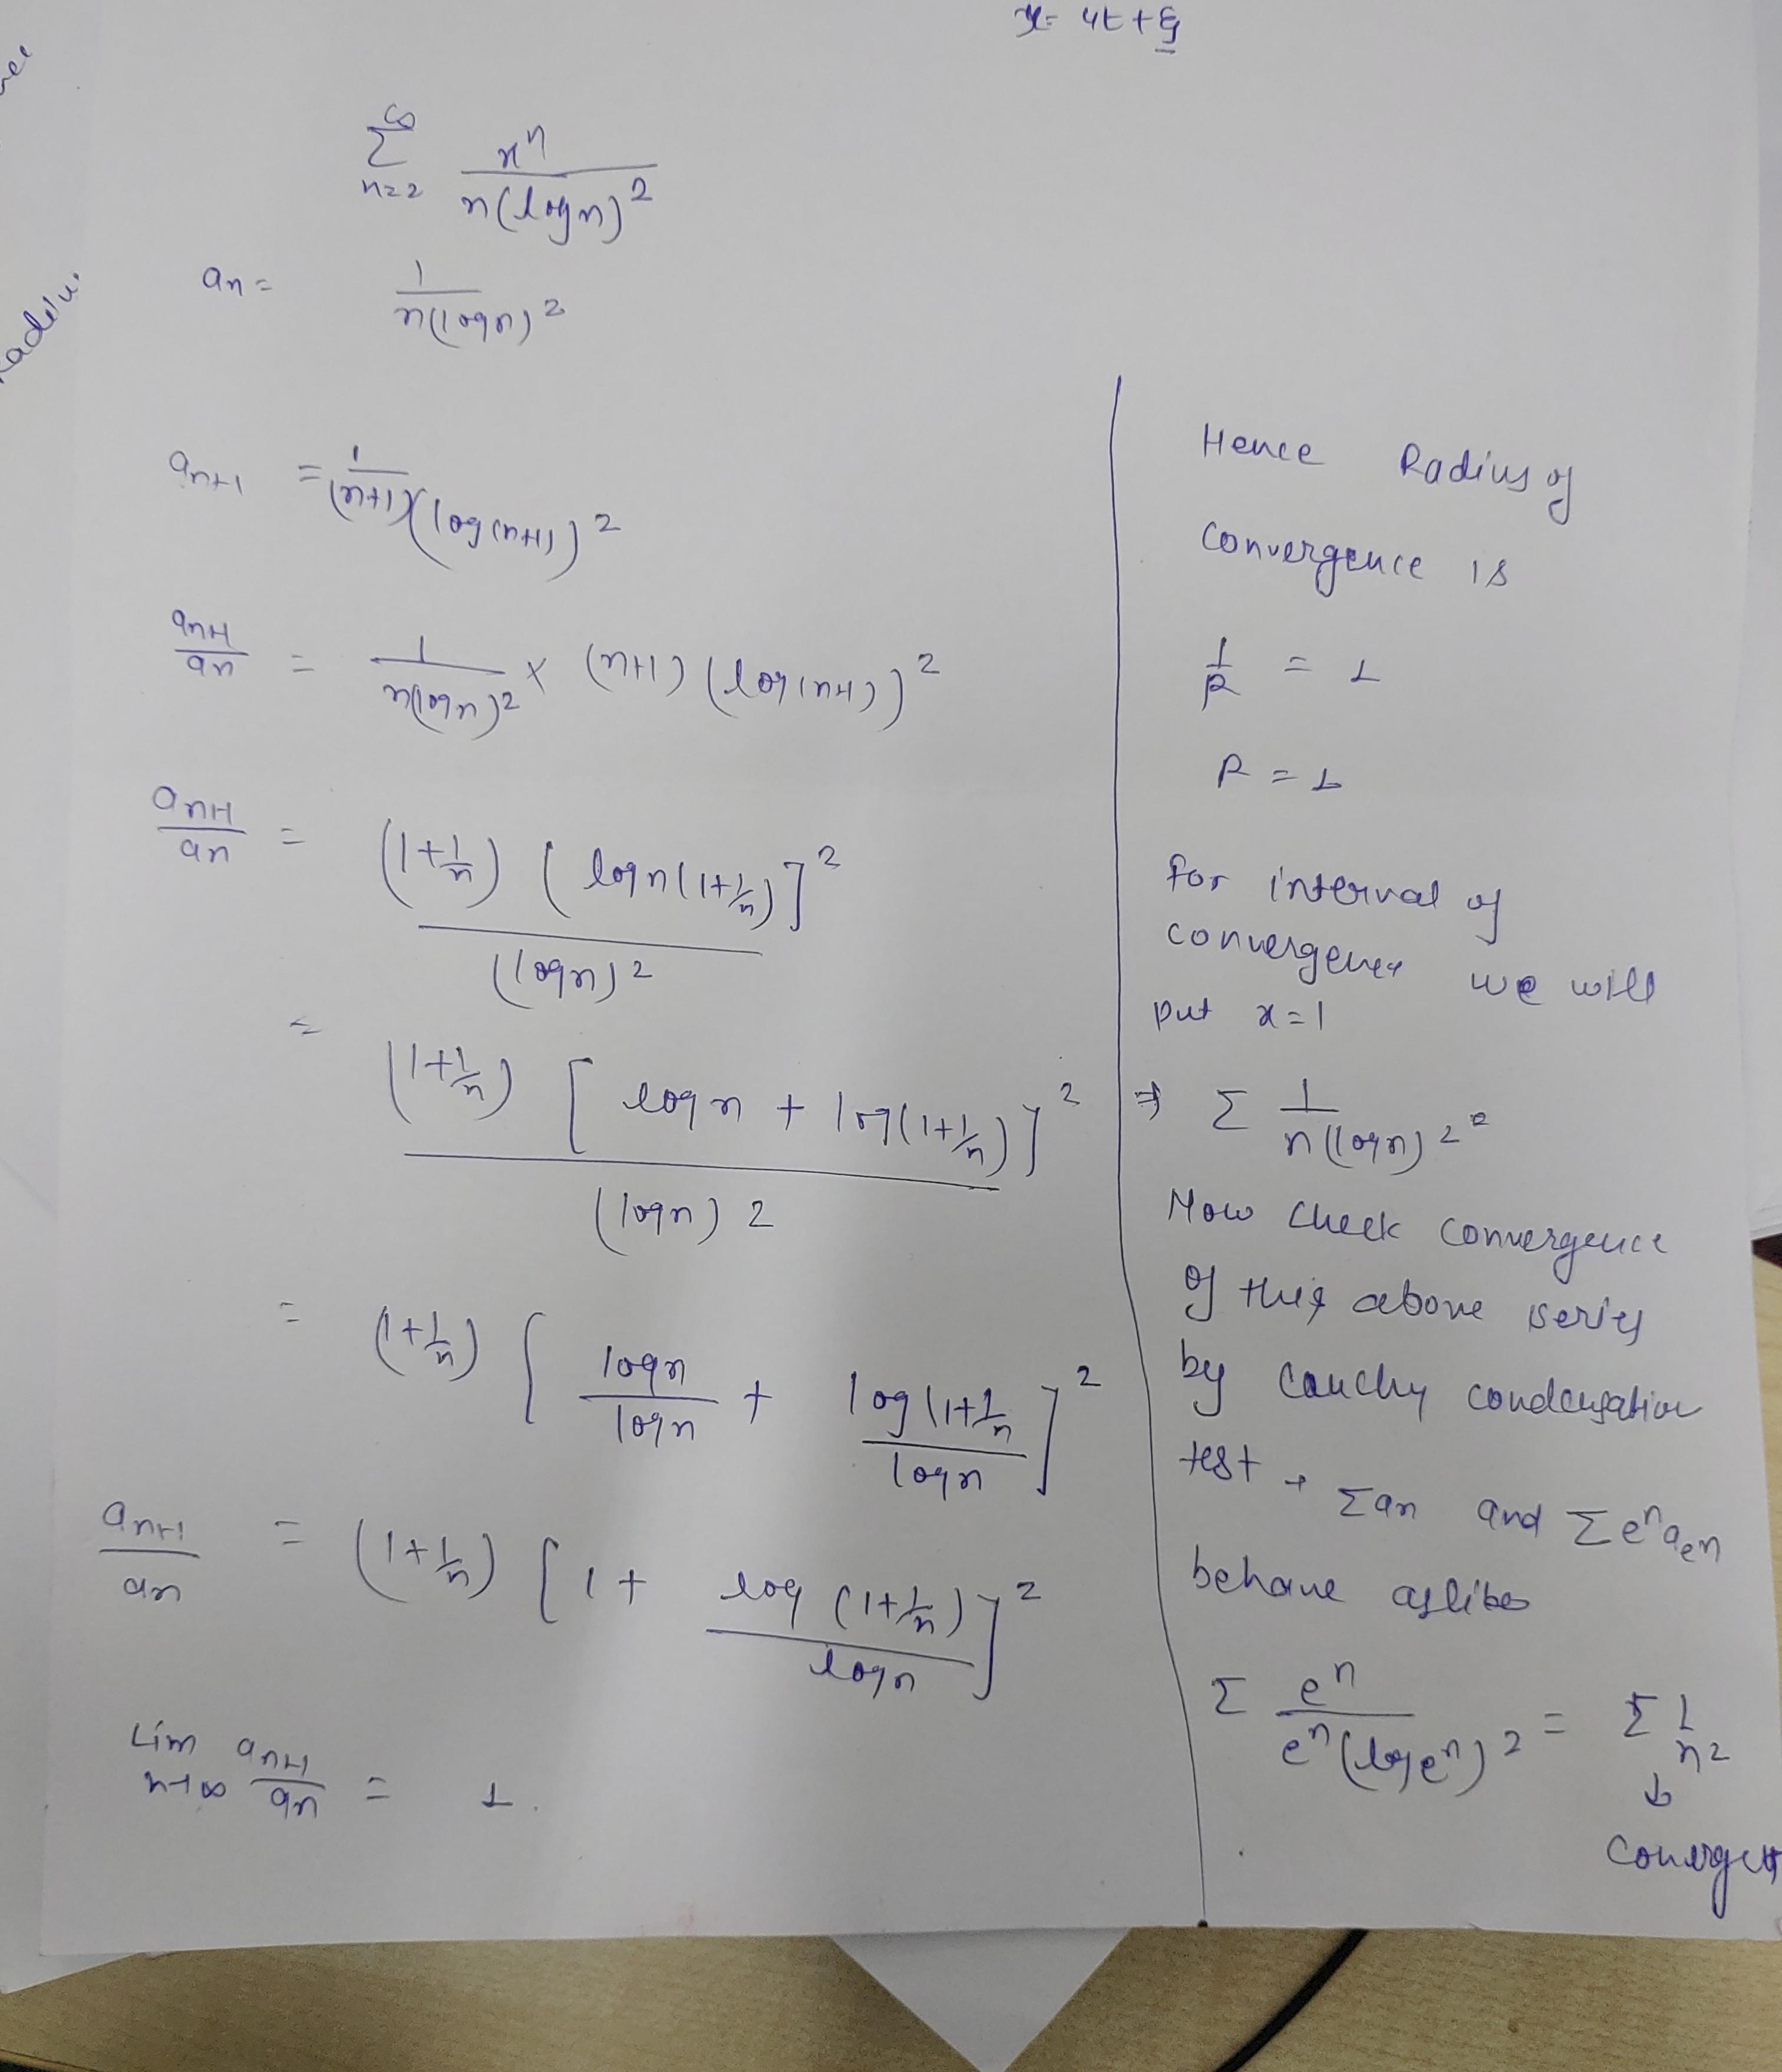 x = 4t + ξ
∞
Σ xⁿ / n(logn)²
n=2
an = 1 / n(logn)²
an+1 = 1 / (n+1)(log(n+1))²
an+1 / an = 1 / n(logn)² × (n+1) (log(n+1))²
an+1 / an = (1+1/n) ( logn(1+1/n) ]² / (logn)²
= (1+1/n) [ logn + log(1+1/n) ]² / (logn)2
= (1+1/n) [ logn / logn + log(1+1/n / logn ]²
an+1 / an = (1+1/n) [ 1 + log (1+1/n) / logn ]²
Lim n→∞ an+1 / an = 1.
Hence Radius of
convergence is
1/R = 1
R = 1
for interval of
convergence we will
put x=1
⇒ Σ 1 / n(logn)2
Now check convergence
of this above series
by Cauchy condensation
test → Σan and Σeⁿaeⁿ
behave
Σ eⁿ / eⁿ(logeⁿ)² = Σ 1/n2
↓